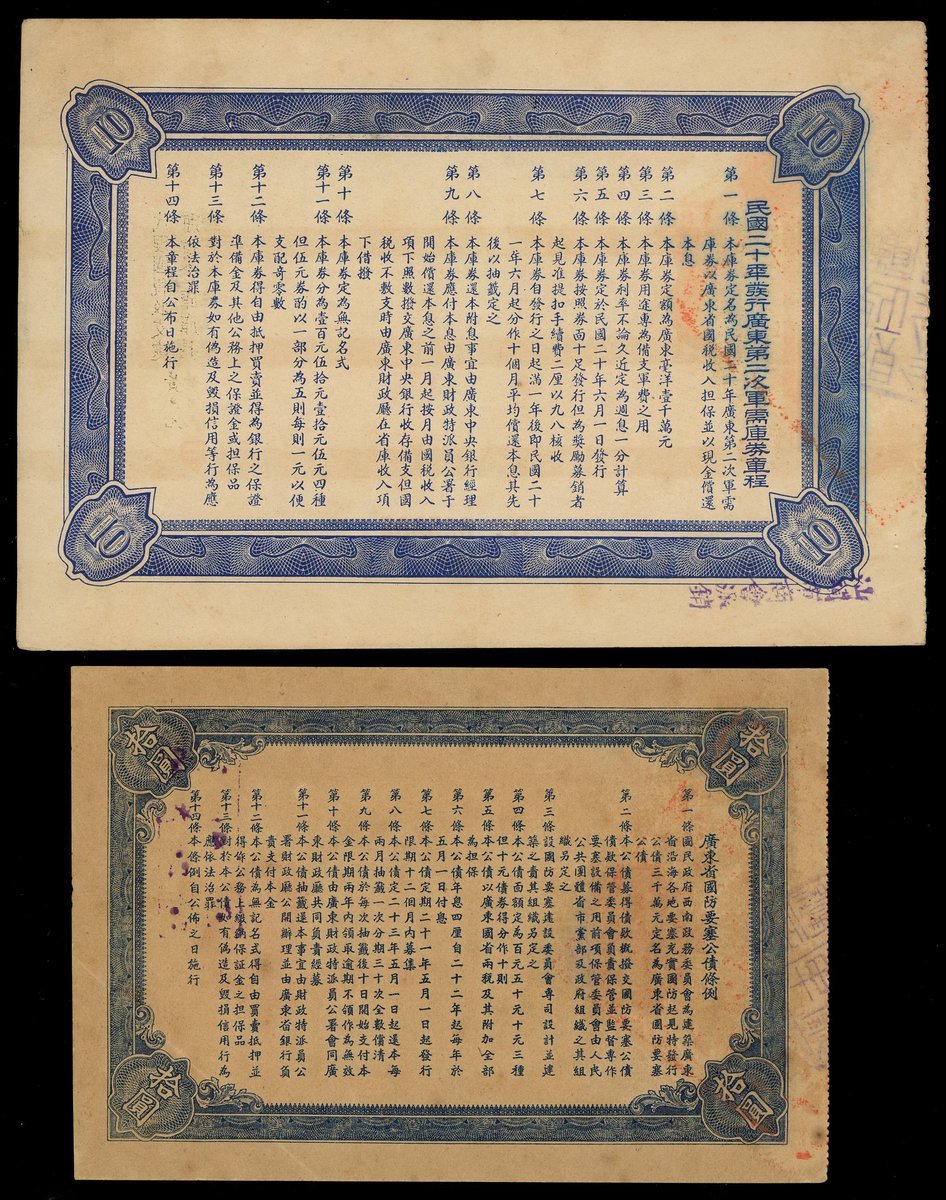 10
10
民國二十年發行廣東第二次軍需庫券章程
第一條 本庫券定名為民國二十年廣東第二次軍需
庫券以廣東省國稅收入担保並以現金償還
本息
第二條 本庫券定額為廣東毫洋壹千萬元
第三條 本庫券用途專為備支軍費之用
第四條 本庫券利率不論久近定為週息一分計算
第五條 本庫券定於民國二十年六月一日發行
第六條 本庫券按照券面十足發行但為獎勵募銷者
起見准提扣手續費二厘以九八核收
第七條 本庫券自發行之日起滿一年後即民國二十
一年六月起分作十個月平均償還本息其先
後以抽籤定之
第八條 本庫券還本附息事宜由廣東中央銀行經理
第九條 本庫券應付本息由廣東財政特派員公署于
開始償還本息之前一月起按月由國稅收入
項下照數撥交廣東中央銀行收存備支但國
稅收不敷支時由廣東財政廳在省庫收入項
下借撥
第十條 本庫券定為無記名式
第十一條 本庫券分為壹百元伍拾元壹拾元伍元四種
但伍元券酌以一部分為五則每則一元以便
支配奇零數
第十二條 本庫券得自由抵押買賣並得為銀行之保證
準備金及其他公務上之保證金或担保品
第十三條 對於本庫券如有偽造及毀損信用等行為應
依法治罪
第十四條 本章程自公布日施行
10
10
商會派銷
拾圓
拾圓
廣東省國防要塞公債條例
第一條 國民政府西南政務委員會為建築廣東
省沿海各地要塞充實國防起見特發行
公債三千萬元定名為廣東省國防要塞
公債
第二條 本公債募得債款概撥交國防要塞公債
債款保管委員會負責保管並監督專作
要塞設備之用前項保管委員會由人民
公共團體省市黨部及政府組織之其組
織另定之
第三條 設國防要塞建設委員會專司設計並建
築之責其組織另定之
第四條 本公債面額定為百元五十元十元三種
但十元債券得分作十則
第五條 本公債以廣東國省兩稅及其附加全部
為担保
第六條 本公債年息四厘自二十二年起每年於
五月一日付息
第七條 本公債定期二十一年五月一日起發行
限期十二個月內募集
第八條 本公債定二十三年五月一日起還本每
兩月抽籤一次分期三十次全數償清
第九條 本公債於每次抽籤後十日開始支付本
金限期兩年內領取逾期不領作為無效
第十條 本公債由廣東財政特派員公署會同廣
東財政廳共同負責經募
第十一條 本公債抽籤還本事宜由財政特派員公
署財政廳公開辦理並由廣東省銀行負
責支付本金
第十二條 本公債為無記名式得自由買賣抵押並
得作公務上繳納保證金之担保品
第十三條 對於本公債如有偽造及毀損信用行為
應依法治罪
第十四條 本條例自公佈之日施行
拾圓
拾圓